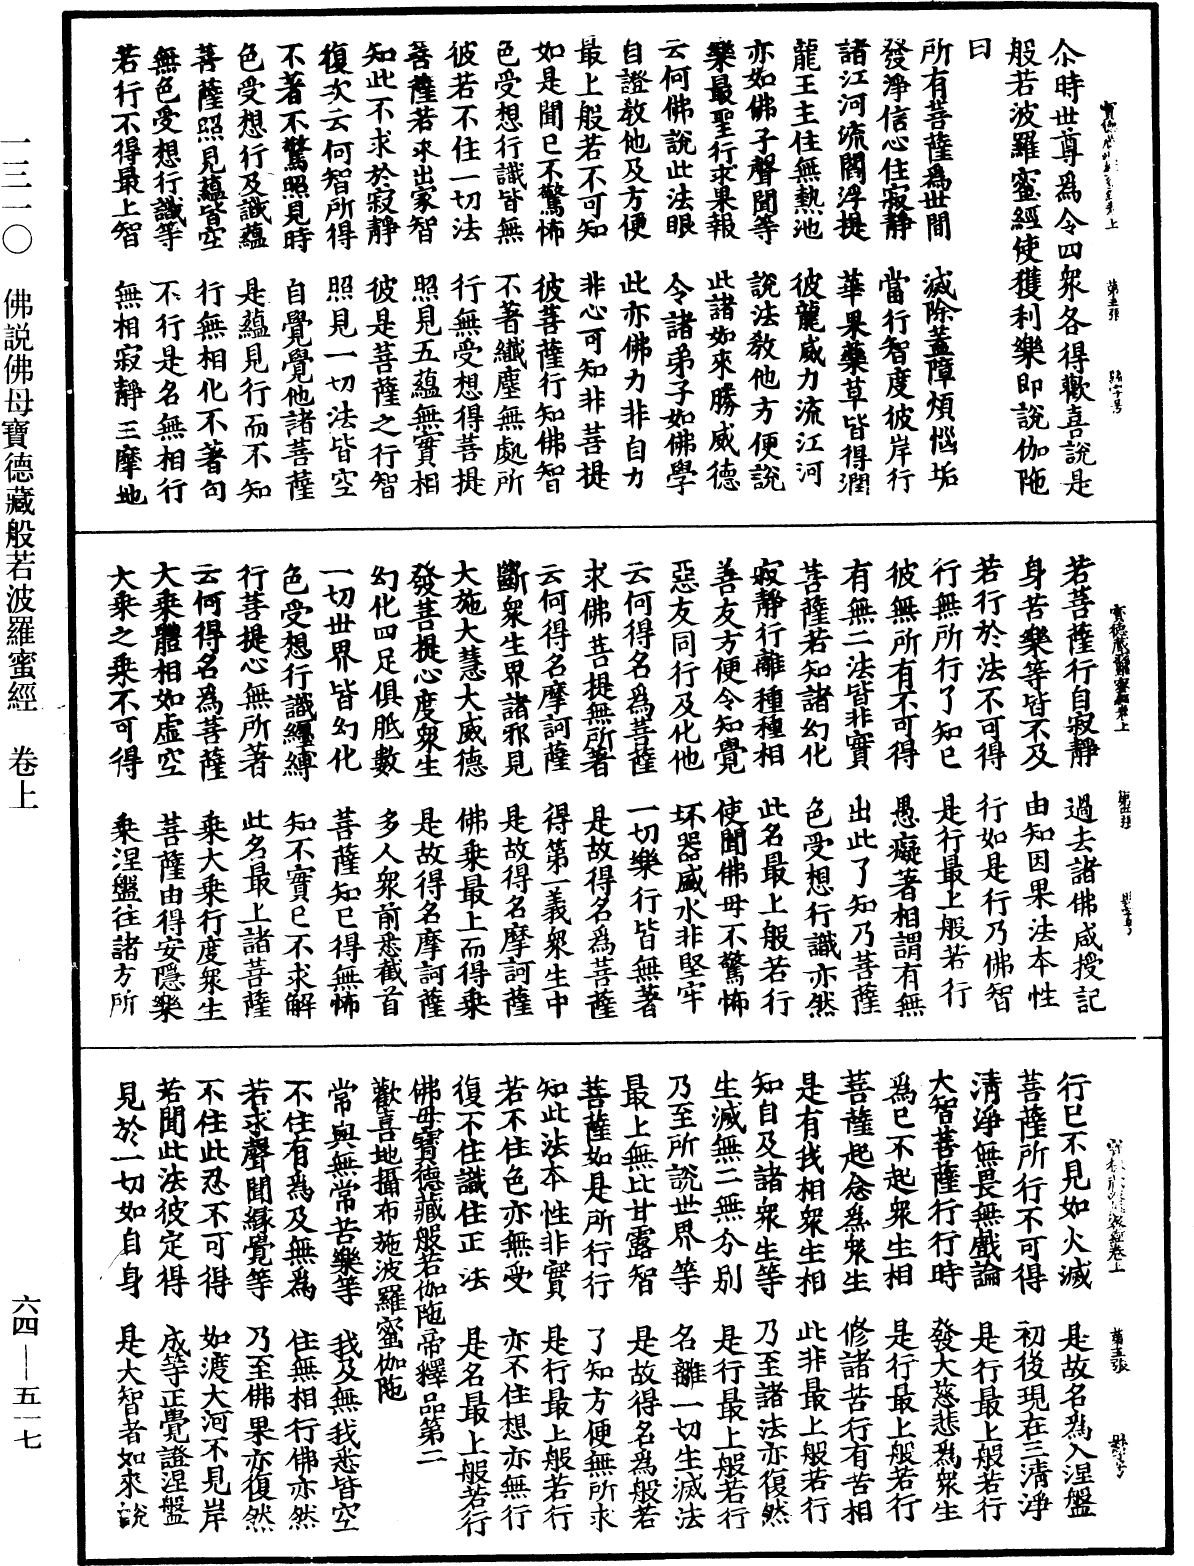 一三一〇　佛説佛母寶德藏般若波羅蜜經　卷上
六四—五一七
尒時世尊爲令四衆各得歡喜説是
般若波羅蜜經使獲利樂即説伽陁
曰
所有菩薩爲世間　滅除蓋障煩惱垢
發淨信心住寂靜　當行智度彼岸行
諸江河流閻浮提　華果藥草皆得潤
龍王主住無熱池　彼龍威力流江河
亦如佛子聲聞等　説法教他方便説
樂最聖行求果報　此諸如來勝威德
云何佛説此法眼　令諸弟子如佛學
自證教他及方便　此亦佛力非自力
最上般若不可知　非心可知非菩提
如是聞已不驚怖　彼菩薩行知佛智
色受想行識皆無　不著纖塵無處所
彼若不住一切法　行無受想得菩提
菩薩若求出家智　照見五蘊無實相
知此不求於寂靜　彼是菩薩之行智
復次云何智所得　照見一切法皆空
不著不驚照見時　自覺覺他諸菩薩
色受想行及識蘊　是蘊見行而不知
菩薩照見蘊皆空　行無相化不著句
無色受想行識等　不行是名無相行
若行不得最上智　無相寂靜三摩地
若菩薩行自寂靜　過去諸佛咸授記
身苦樂等皆不及　由知因果法本性
若行於法不可得　行如是行乃佛智
行無所行了知已　是行最上般若行
彼無所有不可得　愚癡著相謂有無
有無二法皆非實　出此了知乃菩薩
菩薩若知諸幻化　色受想行識亦然
寂靜行離種種相　此名最上般若行
善友方便令知覺　使聞佛母不驚怖
惡友同行及化他　坏器盛水非堅牢
云何得名爲菩薩　一切樂行皆無著
求佛菩提無所著　是故得名爲菩薩
云何得名摩訶薩　得第一義衆生中
斷衆生界諸邪見　是故得名摩訶薩
大施大慧大威德　佛乘最上而得乘
發菩提心度衆生　是故得名摩訶薩
幻化四足俱胝數　多人衆前悉截首
一切世界皆幻化　菩薩知已得無怖
色受想行識纏縛　知不實已不求解
行菩提心無所著　此名最上諸菩薩
云何得名爲菩薩　乘大乘行度衆生
大乘體相如虛空　菩薩由得安隱樂
大乘之乘不可得　乘涅盤往諸方所
行已不見如火滅　是故名爲入涅盤
菩薩所行不可得　初後現在三清淨
清淨無畏無戲論　是行最上般若行
大智菩薩行行時　發大慈悲爲衆生
爲已不起衆生相　是行最上般若行
菩薩起念爲衆生　修諸苦行有苦相
是有我相衆生相　此非最上般若行
知自及諸衆生等　乃至諸法亦復然
生滅無二無分別　是行最上般若行
乃至所説世界等　名離一切生滅法
最上無比甘露智　是故得名爲般若
菩薩如是所行行　了知方便無所求
知此法本性非實　是行最上般若行
若不住色亦無受　亦不住想亦無行
復不住識住正法　是名最上般若行
佛母寶德藏般若伽陁帝釋品第二
歡喜地攝布施波羅蜜伽陁
常與無常苦樂等　我及無我悉皆空
不住有爲及無爲　住無相行佛亦然
若求聲聞緣覺等　乃至佛果亦復然
不住此忍不可得　如渡大河不見岸
若聞此法彼定得　成等正覺證涅盤
見於一切如自身　是大智者如來説